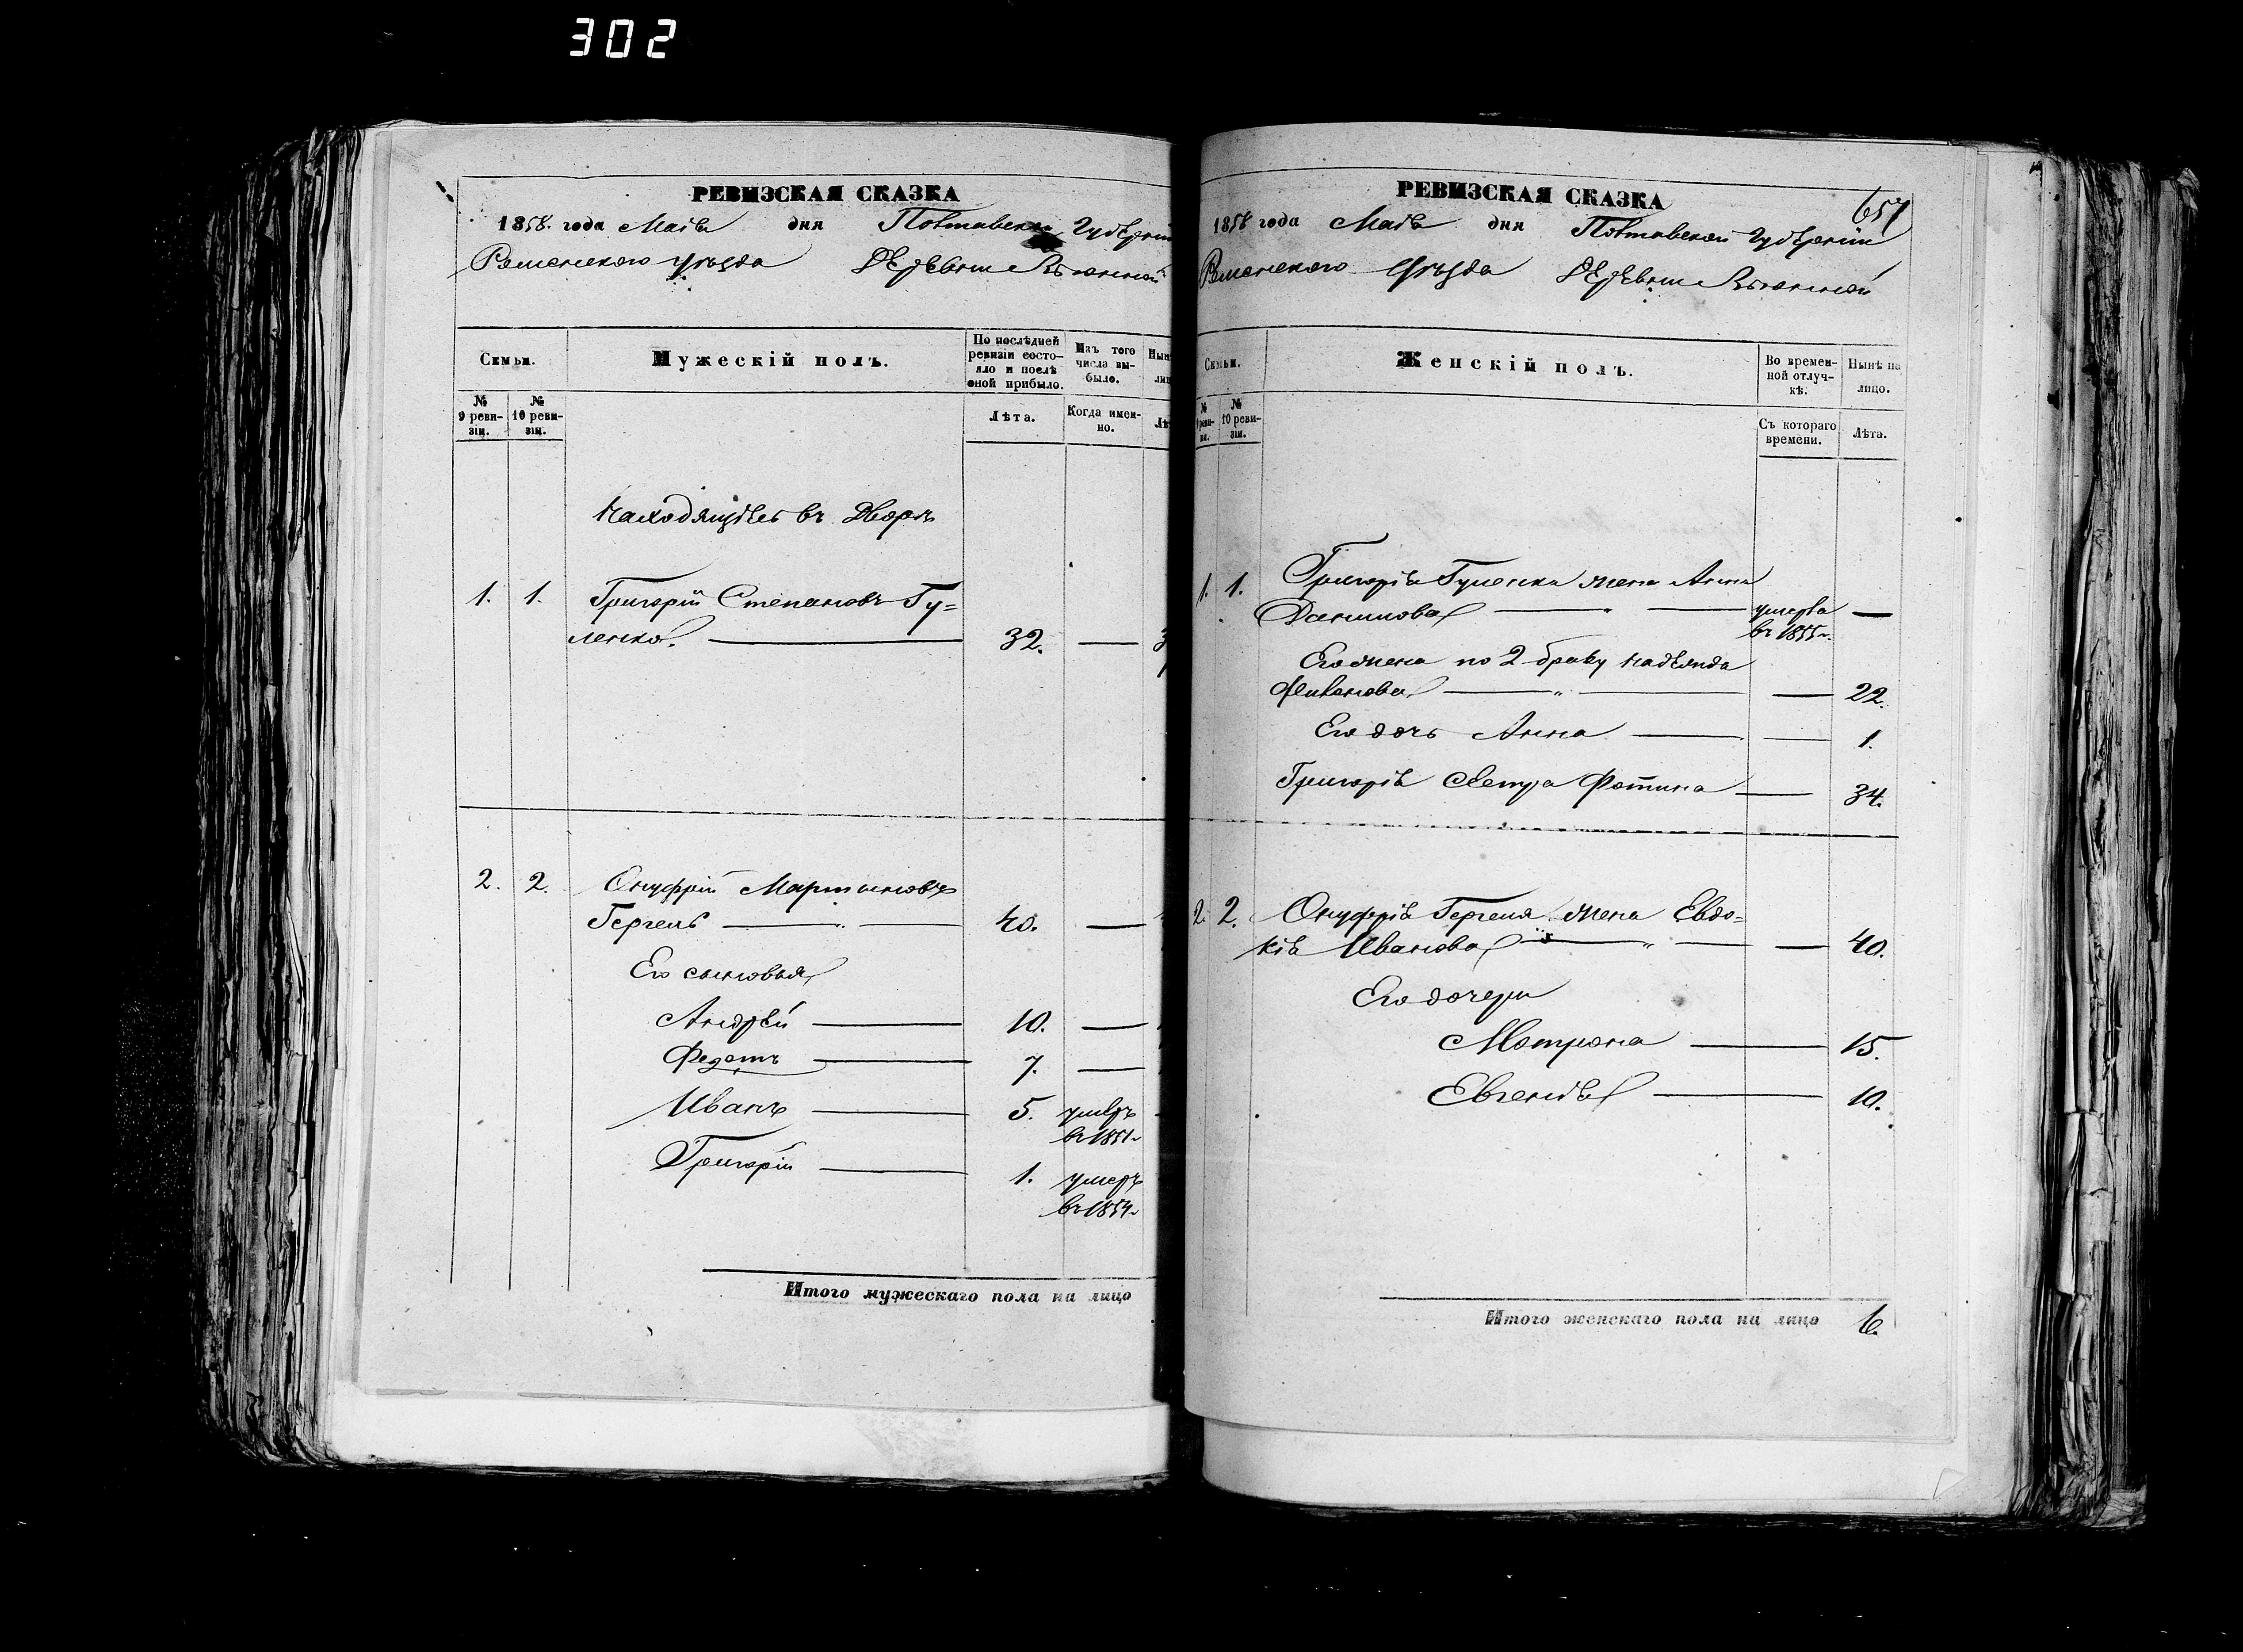 302
РЕВИЗСКАЯ СКАЗКА
1858. года Маія дня Полтавской Губерніи
Роменского уѣзда Деревни
Семьи.
Мужескій полъ.
По послѣдней ревизіи состояло и послѣ оной прибыло.
Изъ того числа выбыло.
№ 9 ревизіи.
№ 10 ревизіи.
Лѣта.
Когда именно.
Находящіеся въ Дворѣ
1. 1. Григорій Степановъ Гу=
ленко. 32. —
2. 2. Онуфрій Мартыновъ
Гергель — " — 40. —
Его сыновья
Андрей — 10. —
Федотъ — 7. —
Иванъ — 5. умеръ
въ 1851
Григорій — 1. умеръ
въ 1854
Итого мужескаго пола на лицо
РЕВИЗСКАЯ СКАЗКА
657
1858 года Маія дня Полтавской Губерніи
Роменского Уѣзда Деревни
Семьи.
Женскій полъ.
Во временной отлучкѣ.
Нынѣ на лицо.
№ 9 ревизіи.
№ 10 ревизіи.
Съ котораго времени.
Лѣта.
1. 1. Григорія Гуленка жена Анна
Данилова — " — умерла —
въ 1855
Его жена по 2 браку Надежда
— " — — 22.
Его дочь Анна — — 1.
Григорія Сестра Фотина — 34.
2. 2. Онуфрія Гергеля жена Евдо=
кія Иванова — " — — 40.
Его дочери
Мотрона — 15.
Евгенія — 10.
Итого женскаго пола на лицо 6.